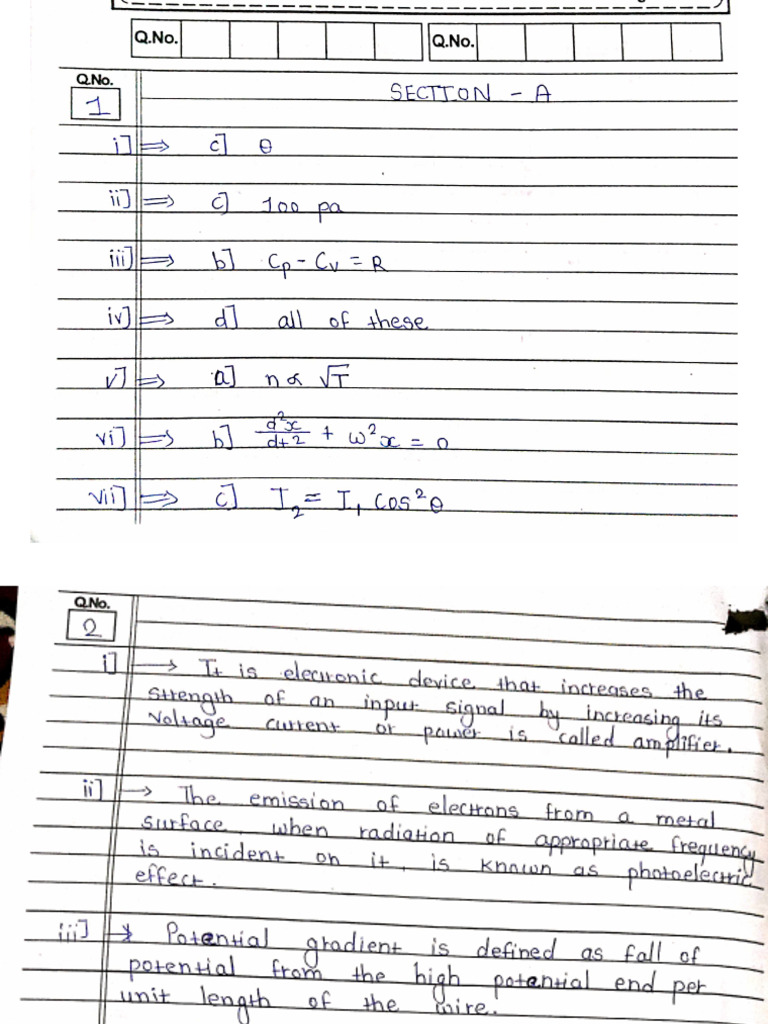 Q.No. Q.No.
Q.No.
1 SECTION - A
i] ⇒ c] θ
ii] ⇒ c] 100 pa
iii] ⇒ b] Cp - Cv = R
iv] ⇒ d] all of these
v] ⇒ a] n ∝ √T
vi] ⇒ b] d²x/dt2 + ω²x = 0
vii] ⇒ c] I₂ = I₁ cos²θ
Q.No.
2
i] → It is electronic device that increases the
strength of an input signal by increasing its
voltage current or power is called amplifier.
ii] → The emission of electrons from a metal
surface, when radiation of appropriate frequency
is incident on it, is known as photoelectric
effect.
iii] → Potential gradient is defined as fall of
potential from the high potential end per
unit length of the wire.